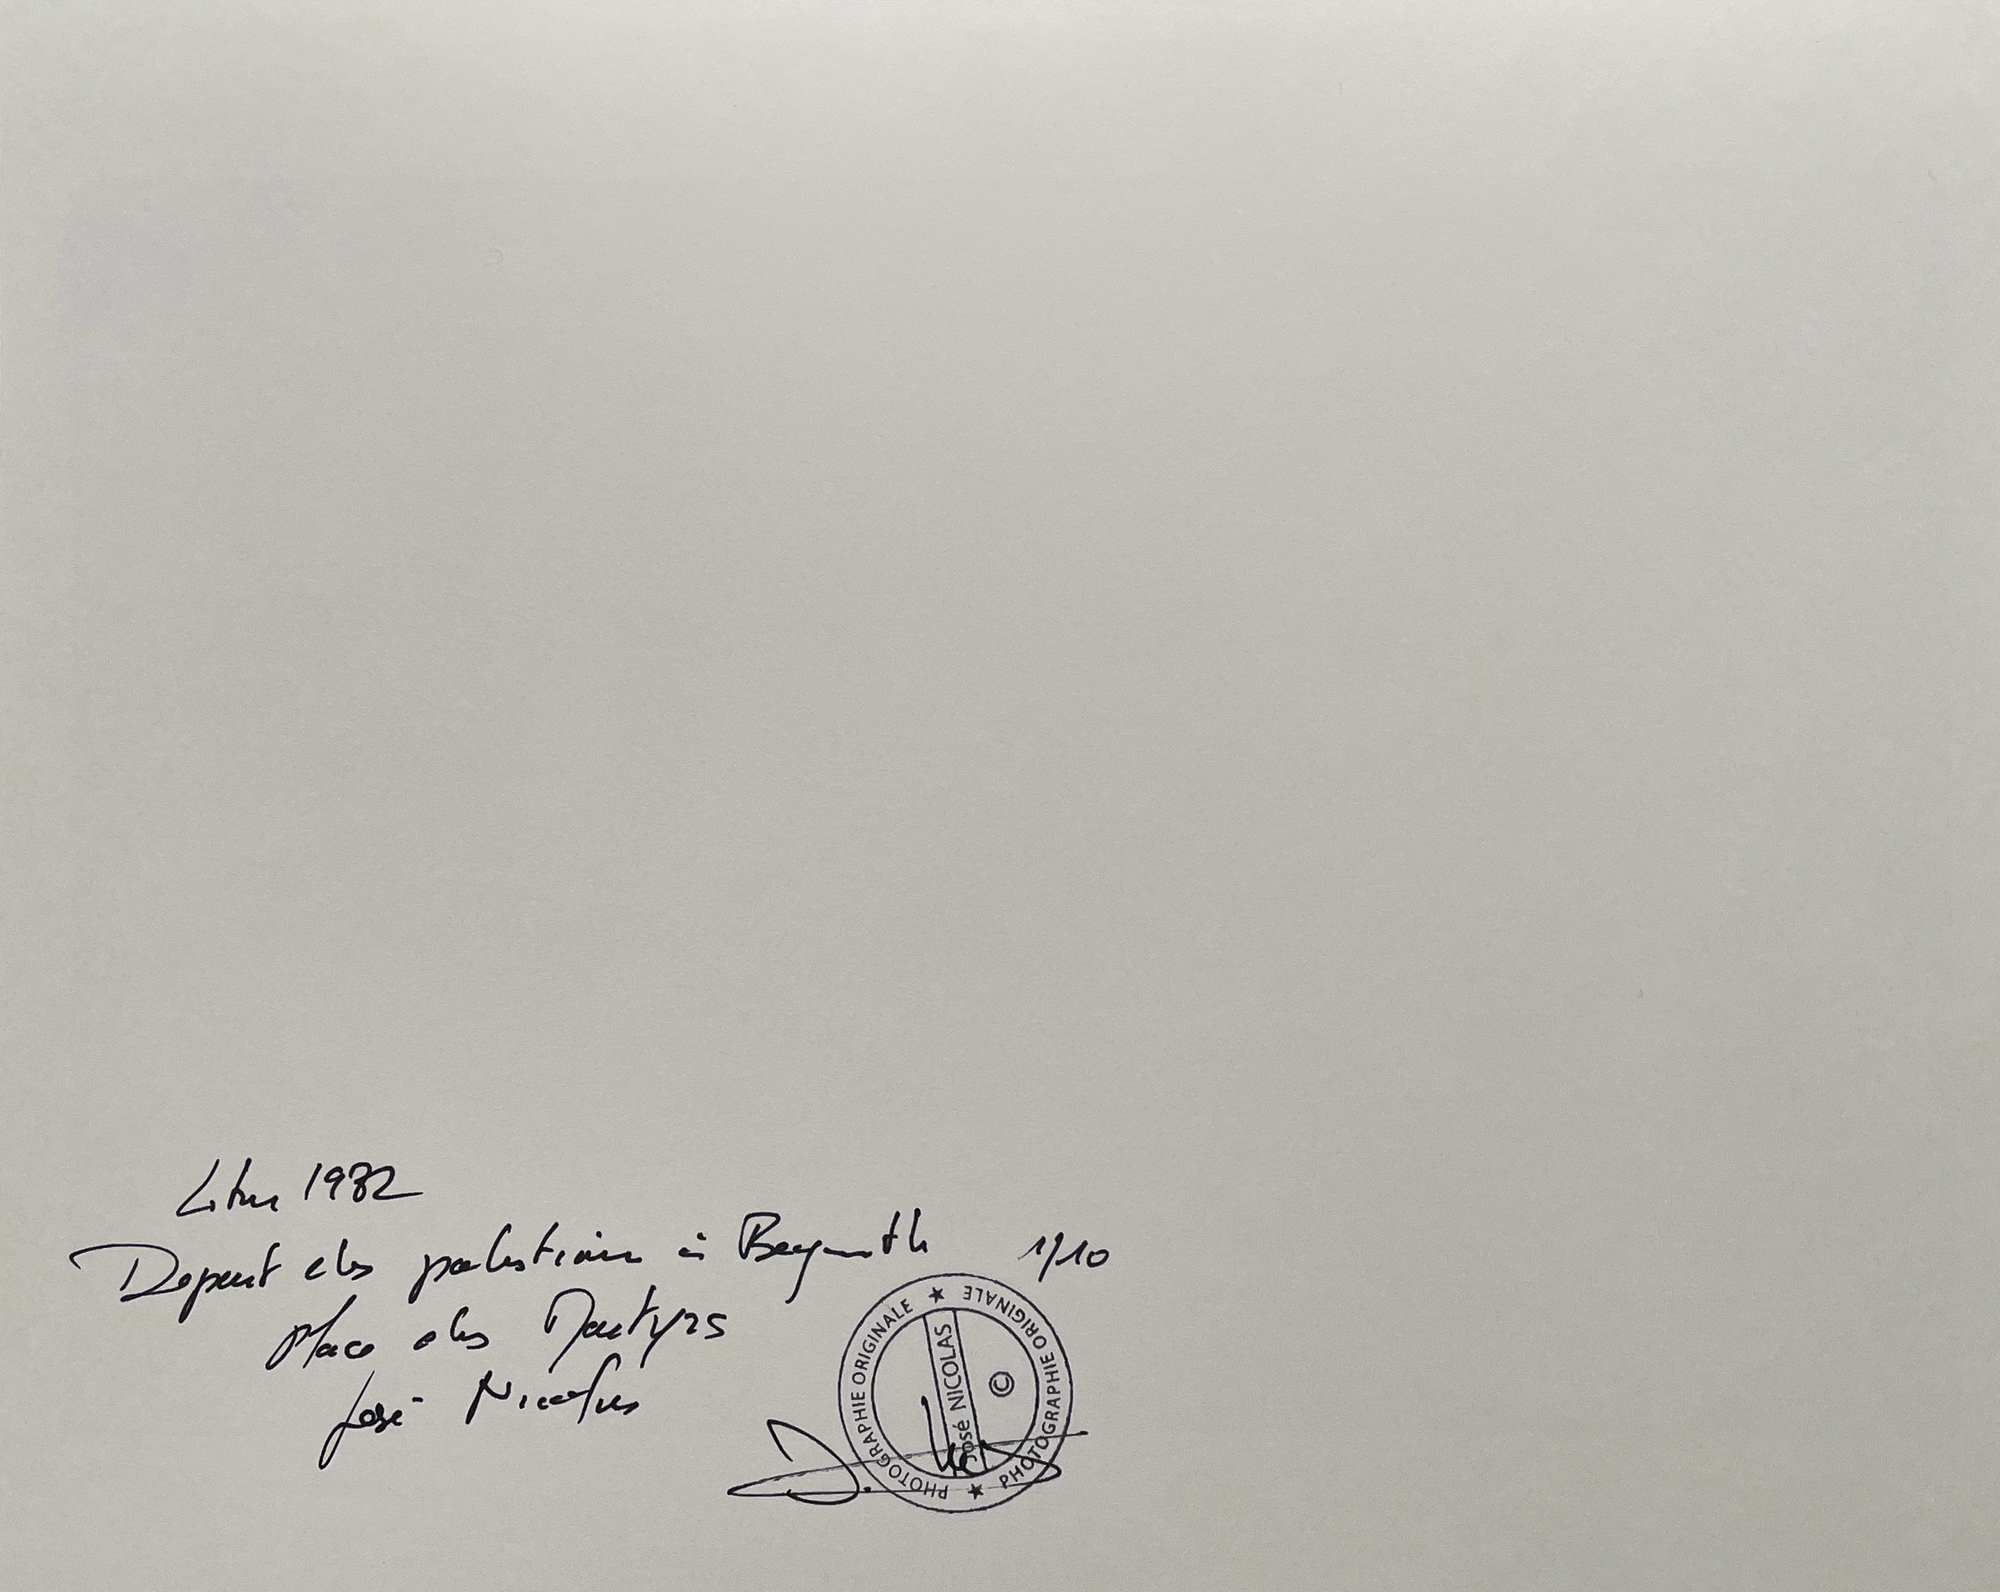 Liban 1982
Depart des palestiniens à Beyrouth
1/10
place des Martyrs
José Nicolas
PHOTOGRAPHIE ORIGINALE ★ PHOTOGRAPHIE ORIGINALE ★
José NICOLAS
©